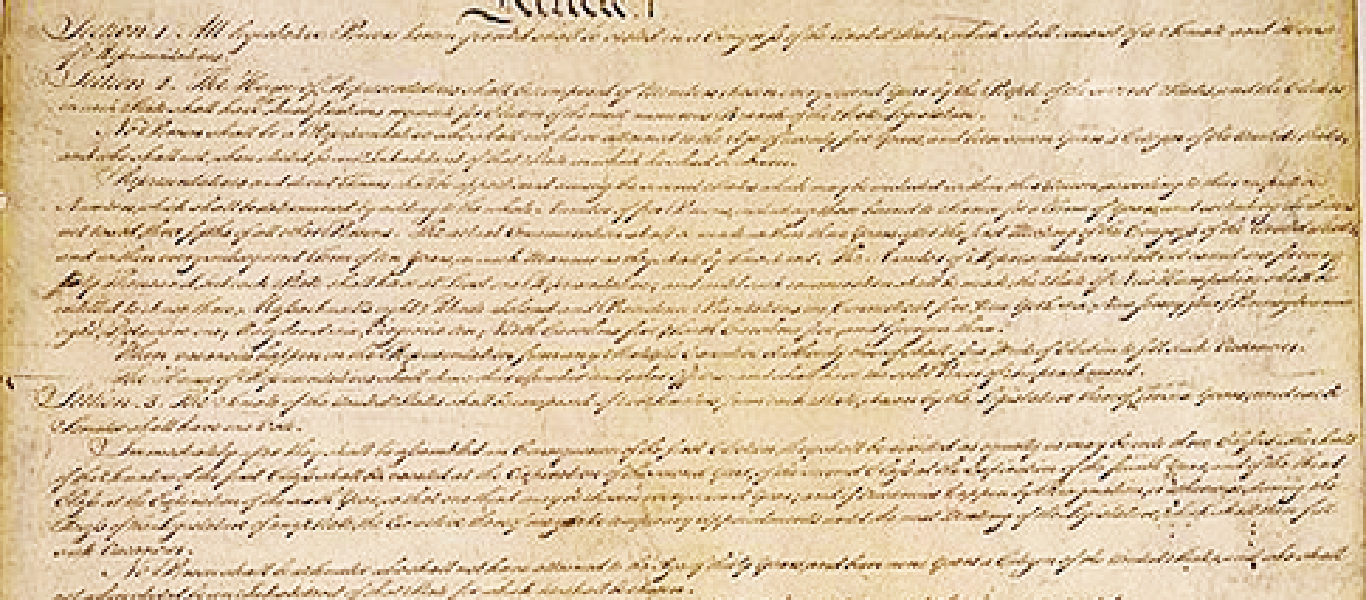 Article. I
Section 1. All legislative Powers herein granted shall be vested in a Congress of the United States, which shall consist of a Senate and House
of Representatives.
Section 2. The House of Representatives shall be composed of Members chosen every second Year by the People of the several States, and the Electors
in each State shall have
No Person shall be a Representative who shall not have attained to the Age of twenty five Years, and been seven Years a Citizen of the United States,
and who shall not, when elected, be an Inhabitant of that State in which he shall be chosen.
Representatives and direct Taxes shall be apportioned among the several States which may be included within this Union, according to their respective
Numbers, which shall be determined by adding to the whole Number of free Persons, including those bound to Service for a Term of Years, and
three fifths of all other Persons. The actual Enumeration shall be made within three Years after the first Meeting of the Congress of the United States,
and within every subsequent Term of ten Years, in such Manner as they shall by Law direct. The Number of Representatives shall not exceed one for every
shall have at Least one Representative; and until such enumeration shall be made, the State of New Hampshire shall be
entitled to chuse three, Massachusetts eight, Rhode Island and Providence Plantations one, Connecticut five, New York six, New Jersey four, Pennsylvania
eight, Delaware one, Maryland six, Virginia ten, North Carolina five, South Carolina five, and Georgia three.
When vacancies happen in the Representation from any State, the Executive Authority thereof shall issue Writs of Election to fill such Vacancies.
The House of Representatives shall chuse their Speaker and other Officers; and shall have the sole Power of Impeachment.
Section. 3. The Senate of the United States shall be composed of two Senators from each State, chosen by the Legislature thereof, for six Years; and each
Senator shall have one Vote.
Immediately after they shall be assembled in Consequence of the first Election, they shall be divided as equally as may be into three Classes. The Seats
of the Senators of the first Class shall be vacated at the Expiration of the second Year, of the second Class at the Expiration of the fourth Year, and of the third
Class at the Expiration of the sixth Year, so that one third may be chosen every second Year; and if Vacancies happen by Resignation, or otherwise, during the
Recess of the Legislature of any State, the Executive thereof may make temporary Appointments until the next Meeting of the Legislature, which shall then fill
such Vacancies.
No Person shall be a Senator who shall not have attained to the Age of thirty Years, and been nine Years a Citizen of the United States, and who shall
not, when elected, be an Inhabitant of that State for which he shall be chosen.